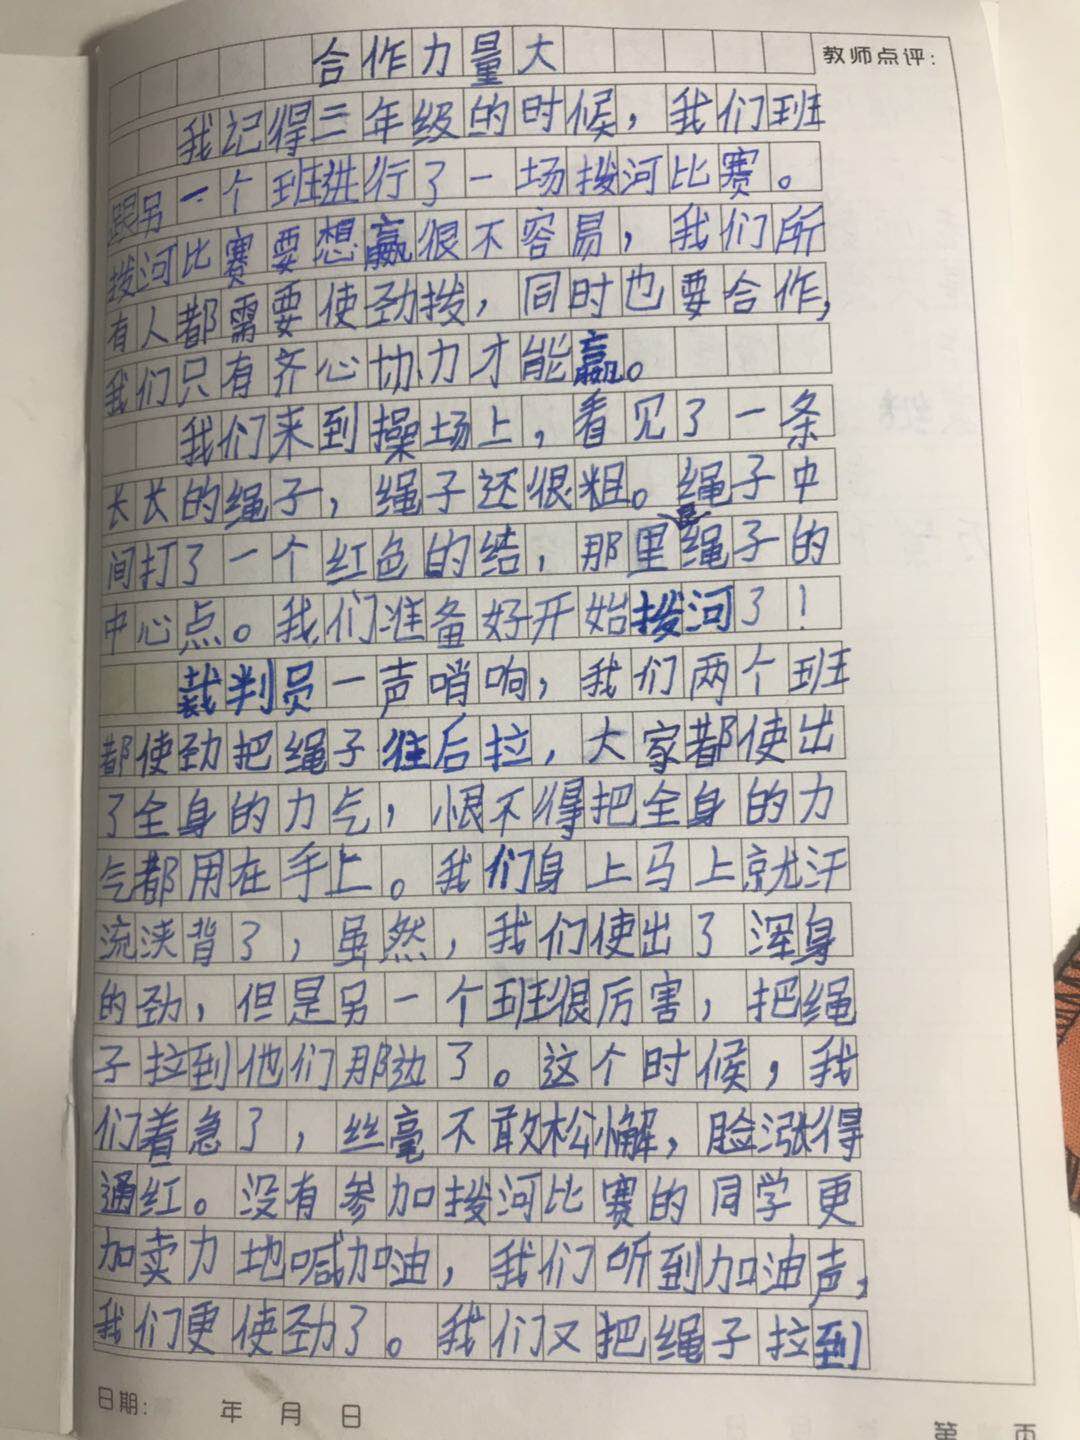 合作力量大
教师点评:
我记得三年级的时候，我们班
跟另一个班进行了一场拨河比赛。
拨河比赛要想赢很不容易，我们所
有人都需要使劲拨，同时也要合作，
我们只有齐心协力才能赢。
我们来到操场上，看见了一条
长长的绳子，绳子还很粗。绳子中
间打了一个红色的结，那里是绳子的
中心点。我们准备好开始拨河了！
裁判员一声哨响，我们两个班
都使劲把绳子往后拉，大家都使出
了全身的力气，恨不得把全身的力
气都用在手上。我们身上马上就汗
流浃背了，虽然，我们使出了浑身
的劲，但是另一个班很厉害，把绳
子拉到他们那边了。这个时候，我
们着急了，丝毫不敢松懈，脸涨得
通红。没有参加拨河比赛的同学更
加卖力地喊加油，我们听到加油声，
我们更使劲了。我们又把绳子拉到
日期: 年 月 日
第 页